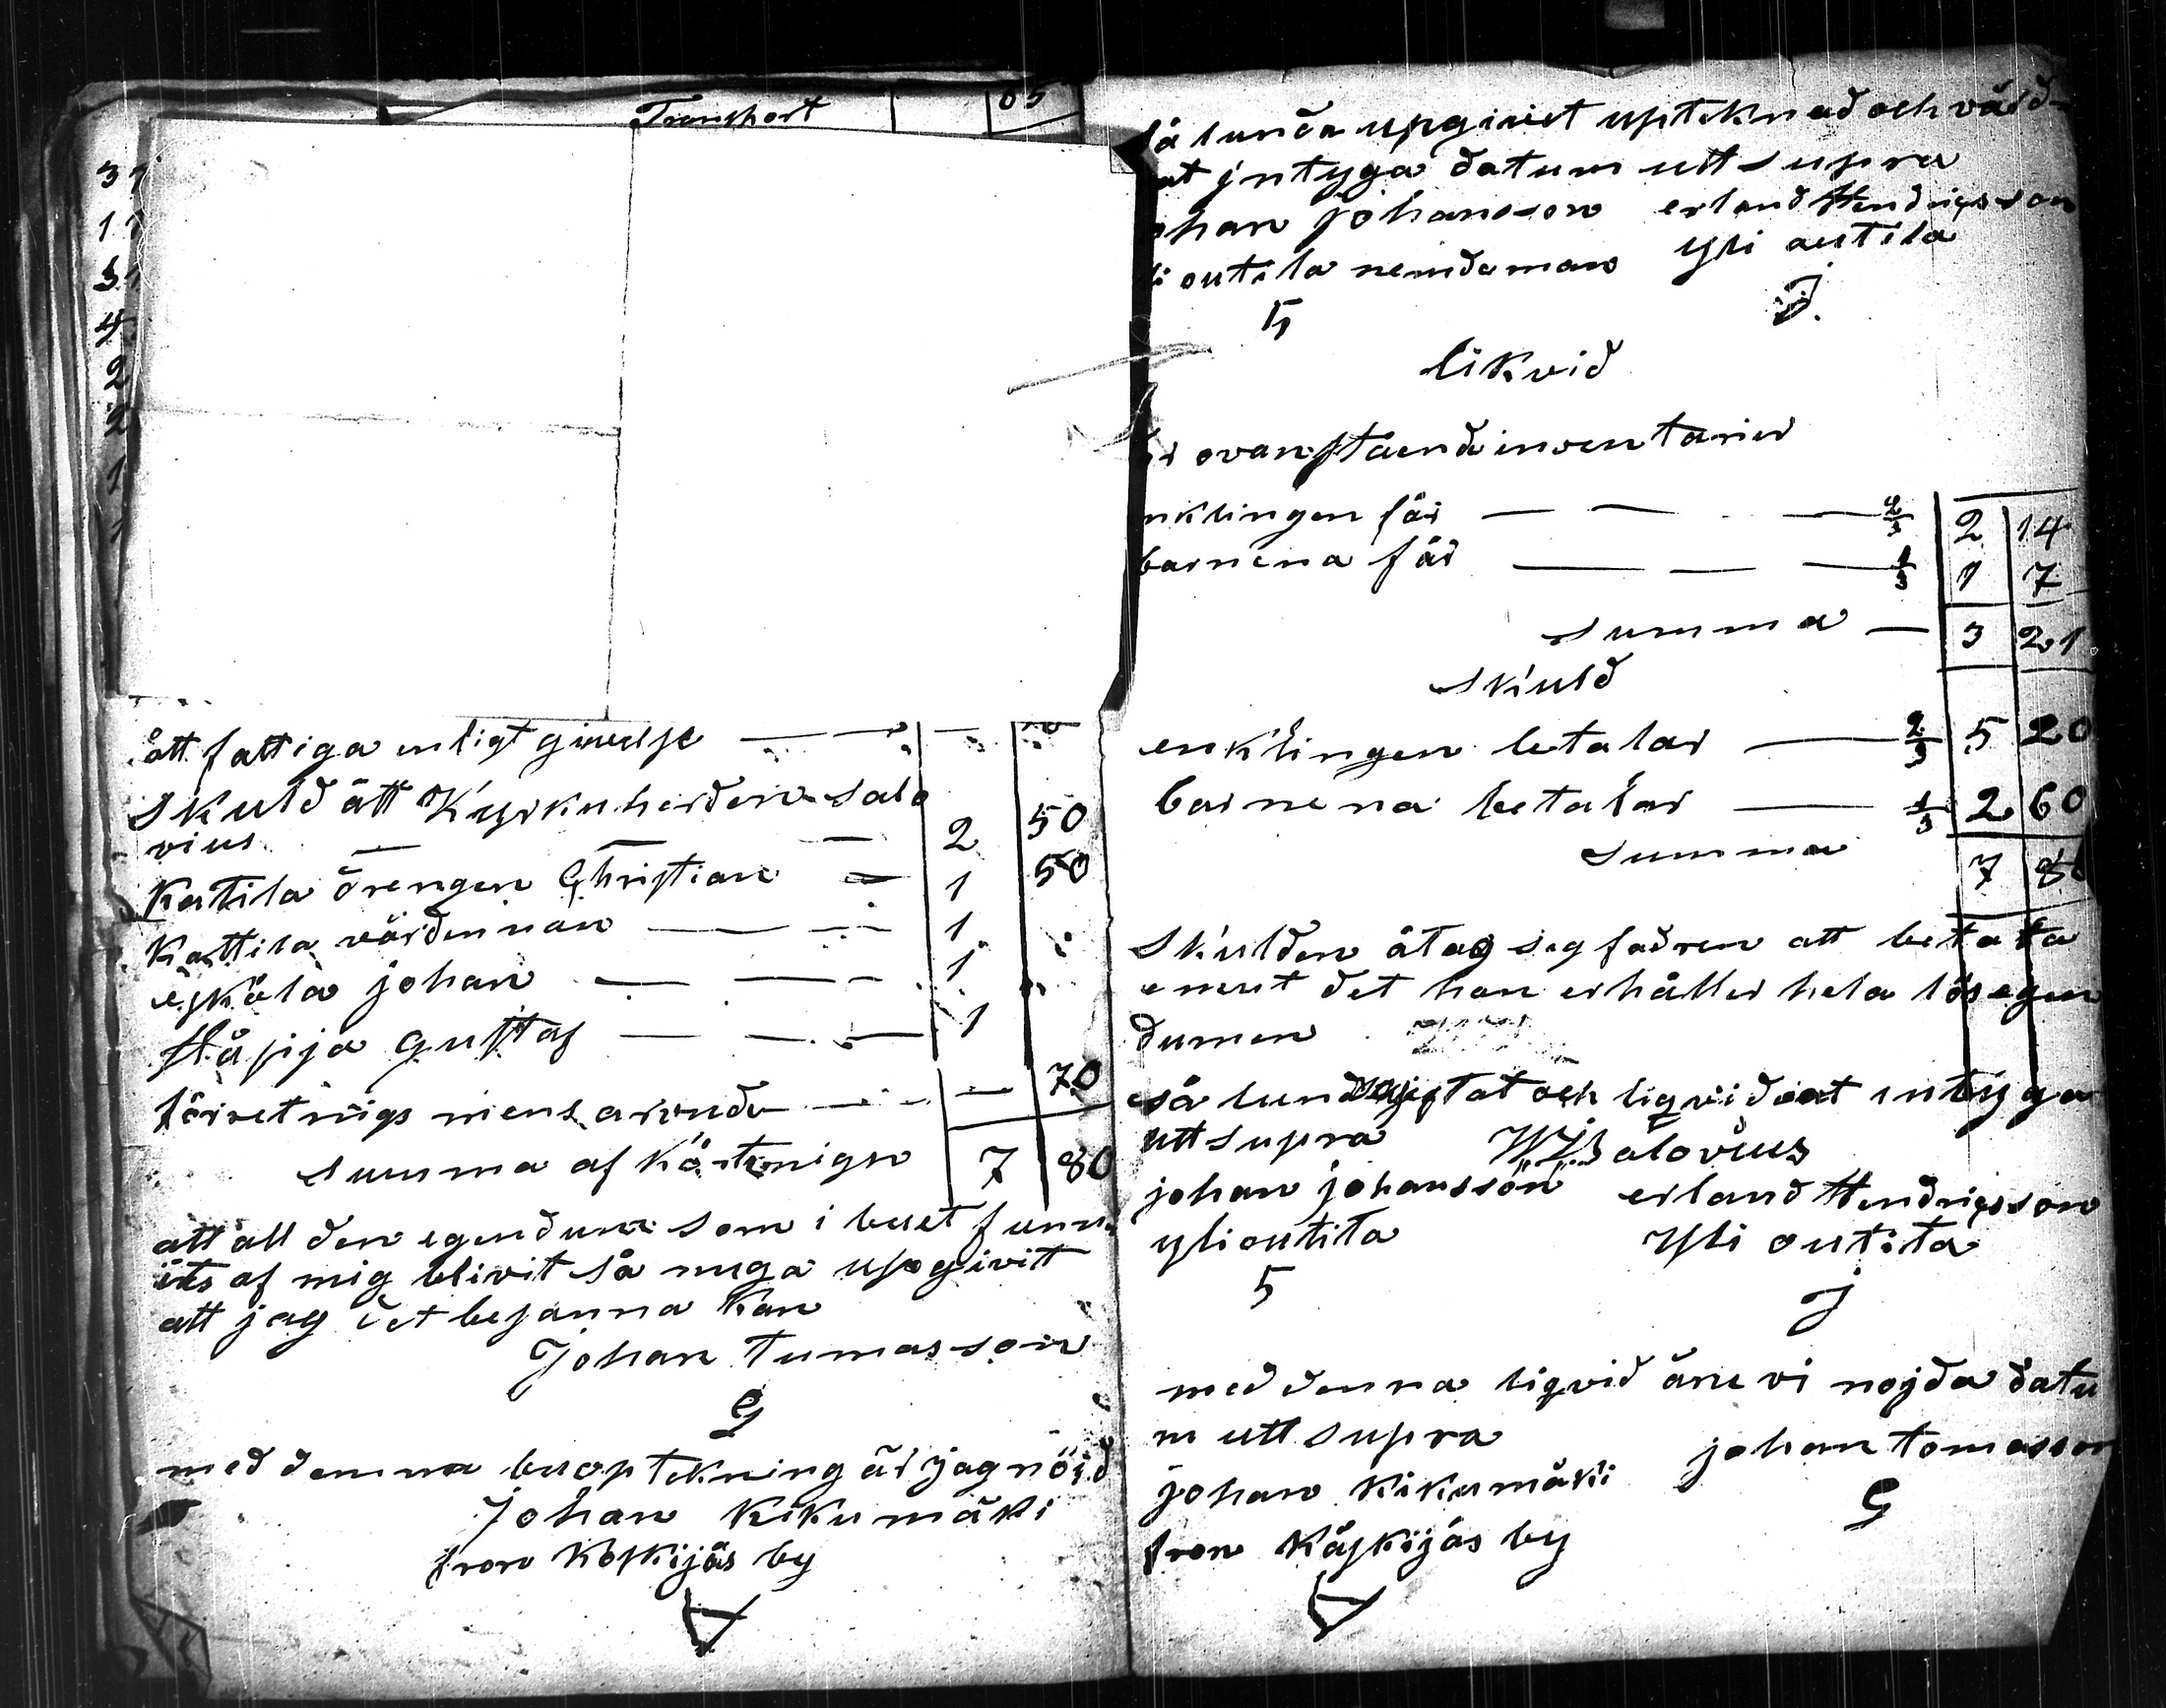 Transport 65
3
1
3
4
2
2
1
1
ått fattiga enligt givelse — —
Skuld ått Kyrkuherden salo
vius — — — 2 50
Katila drengen Christian — 1 50
Kattila värdennan — — 1
eskola johan — — 1
Häpija gustaf — — 1
förretnigs mens arvude — — 70
Summa af kåstnign 7 80
att all den egendum som i buet funn
its af mig blivit så nuga upgivit
att jag det besanna kan
Johan Tumasson
med denna buoptekning är jag nöid
Johan Kikumäki
fron Koskijäs by
så lunda upgivet upteknad och värd-
at jntyga datum utt supra
ohan johansson erland Hendrigsson
li outila nemdeman Yli autila
5 J.
likvid
ovanstaende inventarier
nklingen får — — — 2/3 2 14
barnena får — — — 1/3 1 7
summa — 3 21
skuld
enklingen betalar — 2/3 5 20
barnena betalar — 1/3 2 60
summa 7 80
Skulden åtag seg fadren att betala
emut det han erhåller hela lösegen
dumen
så lunda och liqviderat intyga
utt supra Salovius
johan johansson erland Hendrigsson
ylioutila Yli outila
5 J
med denna liqvid äre vi nojda datu
m utt supra
johan Kikumäki johan tomasson
fron Käskijäs by